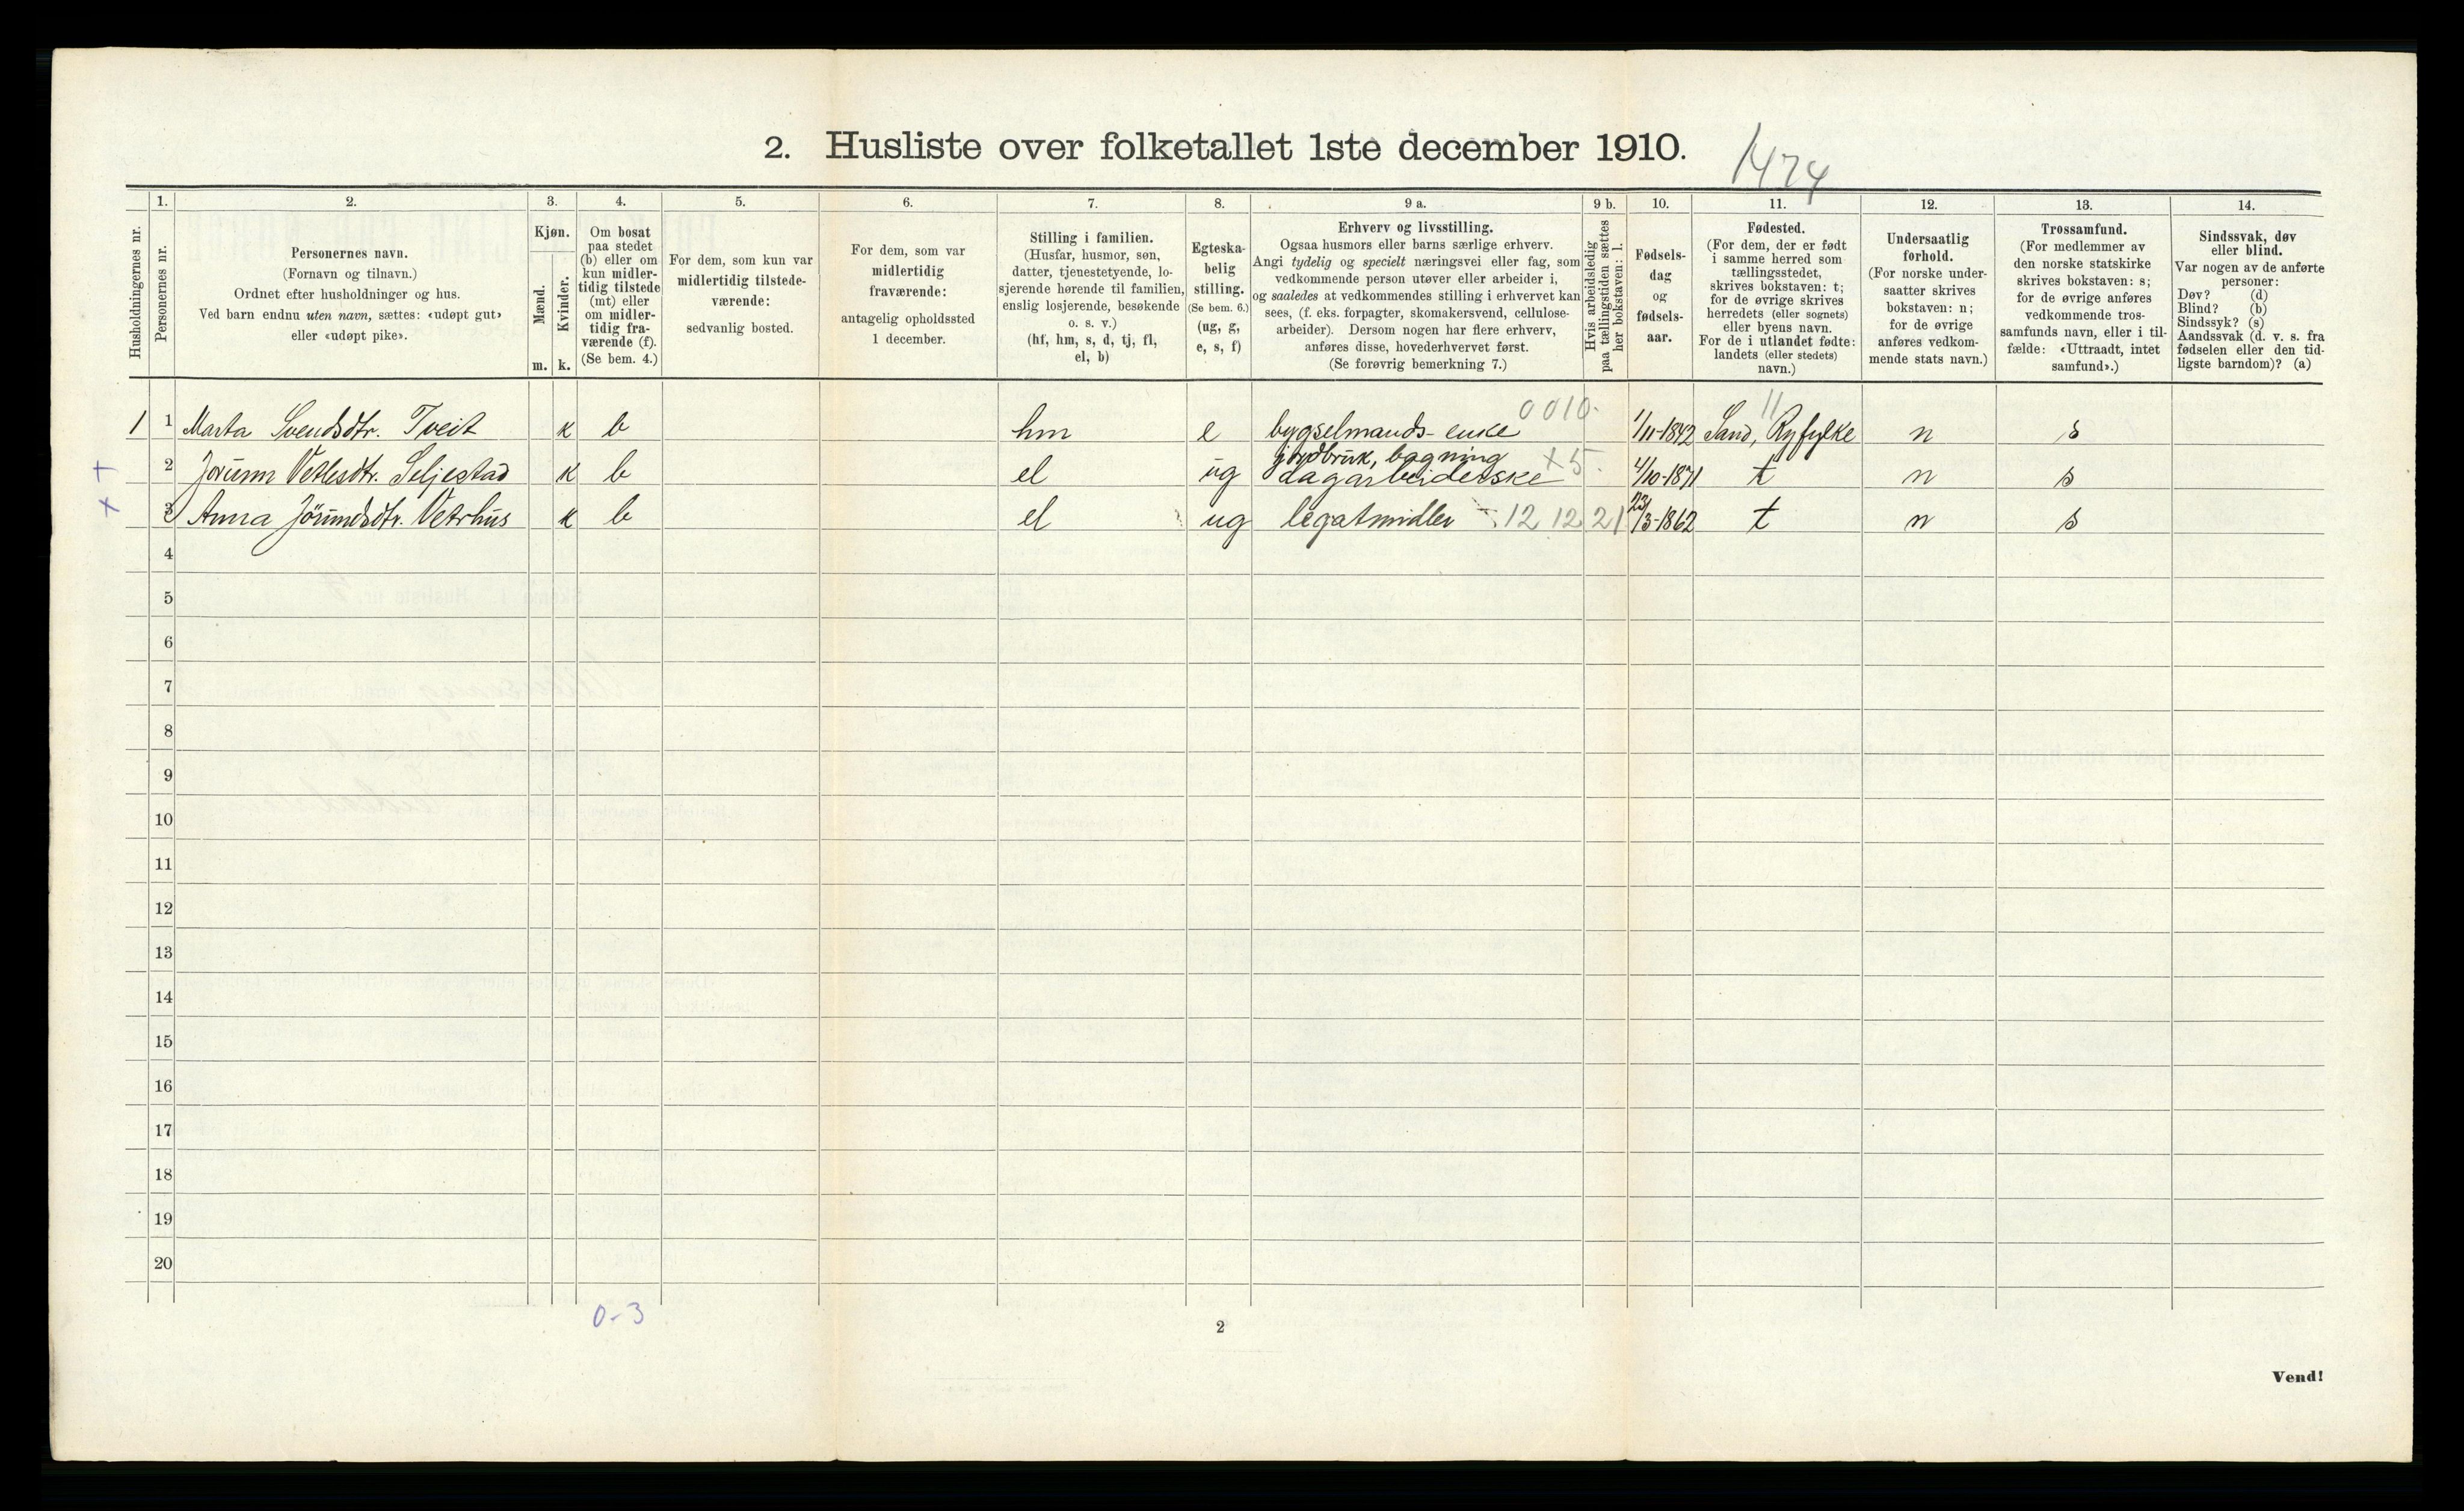 2. Husliste over folketallet 1ste december 1910.
1474
Husholdningernes nr.
1.
Personernes nr.
2.
Personernes navn.
(Fornavn og tilnavn.)
Ordnet efter husholdninger og hus.
Ved barn endnu uten navn, sættes: «udøpt gut»
eller «udøpt pike».
3.
Kjøn.
Mænd.
Kvinder.
m.
k.
4.
Om bosat
paa stedet
(b) eller om
kun midler-
tidig tilstede
(mt) eller
om midler-
tidig fra-
værende (f).
(Se bem. 4.)
5.
For dem, som kun var
midlertidig tilstede-
værende:
sedvanlig bosted.
6.
For dem, som var
midlertidig
fraværende:
antagelig opholdssted
1 december.
7.
Stilling i familien.
(Husfar, husmor, søn,
datter, tjenestetyende, lo-
sjerende hørende til familien,
enslig losjerende, besøkende
o. s. v.)
(hf, hm, s, d, tj, fl,
el, b)
8.
Egteska-
belig
stilling.
(Se bem. 6.)
(ug, g,
e, s, f)
9 a.
Erhverv og livsstilling.
Ogsaa husmors eller barns særlige erhverv.
Angi tydelig og specielt næringsvei eller fag, som
vedkommende person utøver eller arbeider i,
og saaledes at vedkommendes stilling i erhvervet kan
sees, (f. eks. forpagter, skomakersvend, cellulose-
arbeider). Dersom nogen har flere erhverv,
anføres disse, hovederhvervet først.
(Se forøvrig bemerkning 7.)
9 b.
Hvis arbeidsledig
paa tællingstiden sættes
her bokstaven: l.
10.
Fødsels-
dag
og
fødsels-
aar.
11.
Fødested.
(For dem, der er født
i samme herred som
tællingsstedet,
skrives bokstaven: t;
for de øvrige skrives
herredets (eller sognets)
eller byens navn.
For de i utlandet fødte:
landets (eller stedets)
navn.)
12.
Undersaatlig
forhold.
(For norske under-
saatter skrives
bokstaven: n;
for de øvrige
anføres vedkom-
mende stats navn.)
13.
Trossamfund.
(For medlemmer av
den norske statskirke
skrives bokstaven: s;
for de øvrige anføres
vedkommende tros-
samfunds navn, eller i til-
fælde: «Uttraadt, intet
samfund».)
14.
Sindssvak, døv
eller blind.
Var nogen av de anførte
personer:
Døv? (d)
Blind? (b)
Sindssyk? (s)
Aandssvak (d. v. s. fra
fødselen eller den tid-
ligste barndom)? (a)
0010. 11
1 1 Marta Svendsdtr. Tveit k b hm e bygselmands-enke 1/11-1842 Sand, Ryfylke n s
jordbruk, bagning
+ 2 Jorunn Vetlesdtr. Seljestad k b el ug dagarbeiderske x5. 4/10-1871 t n s
x 3 Anna Jörundsdtr. Vetrhus k b el ug legatmidler 12 12 21 22/3-1862 t n s
4
5
6
7
8
9
10
11
12
13
14
15
16
17
18
19
20
0-3
2
Vend!